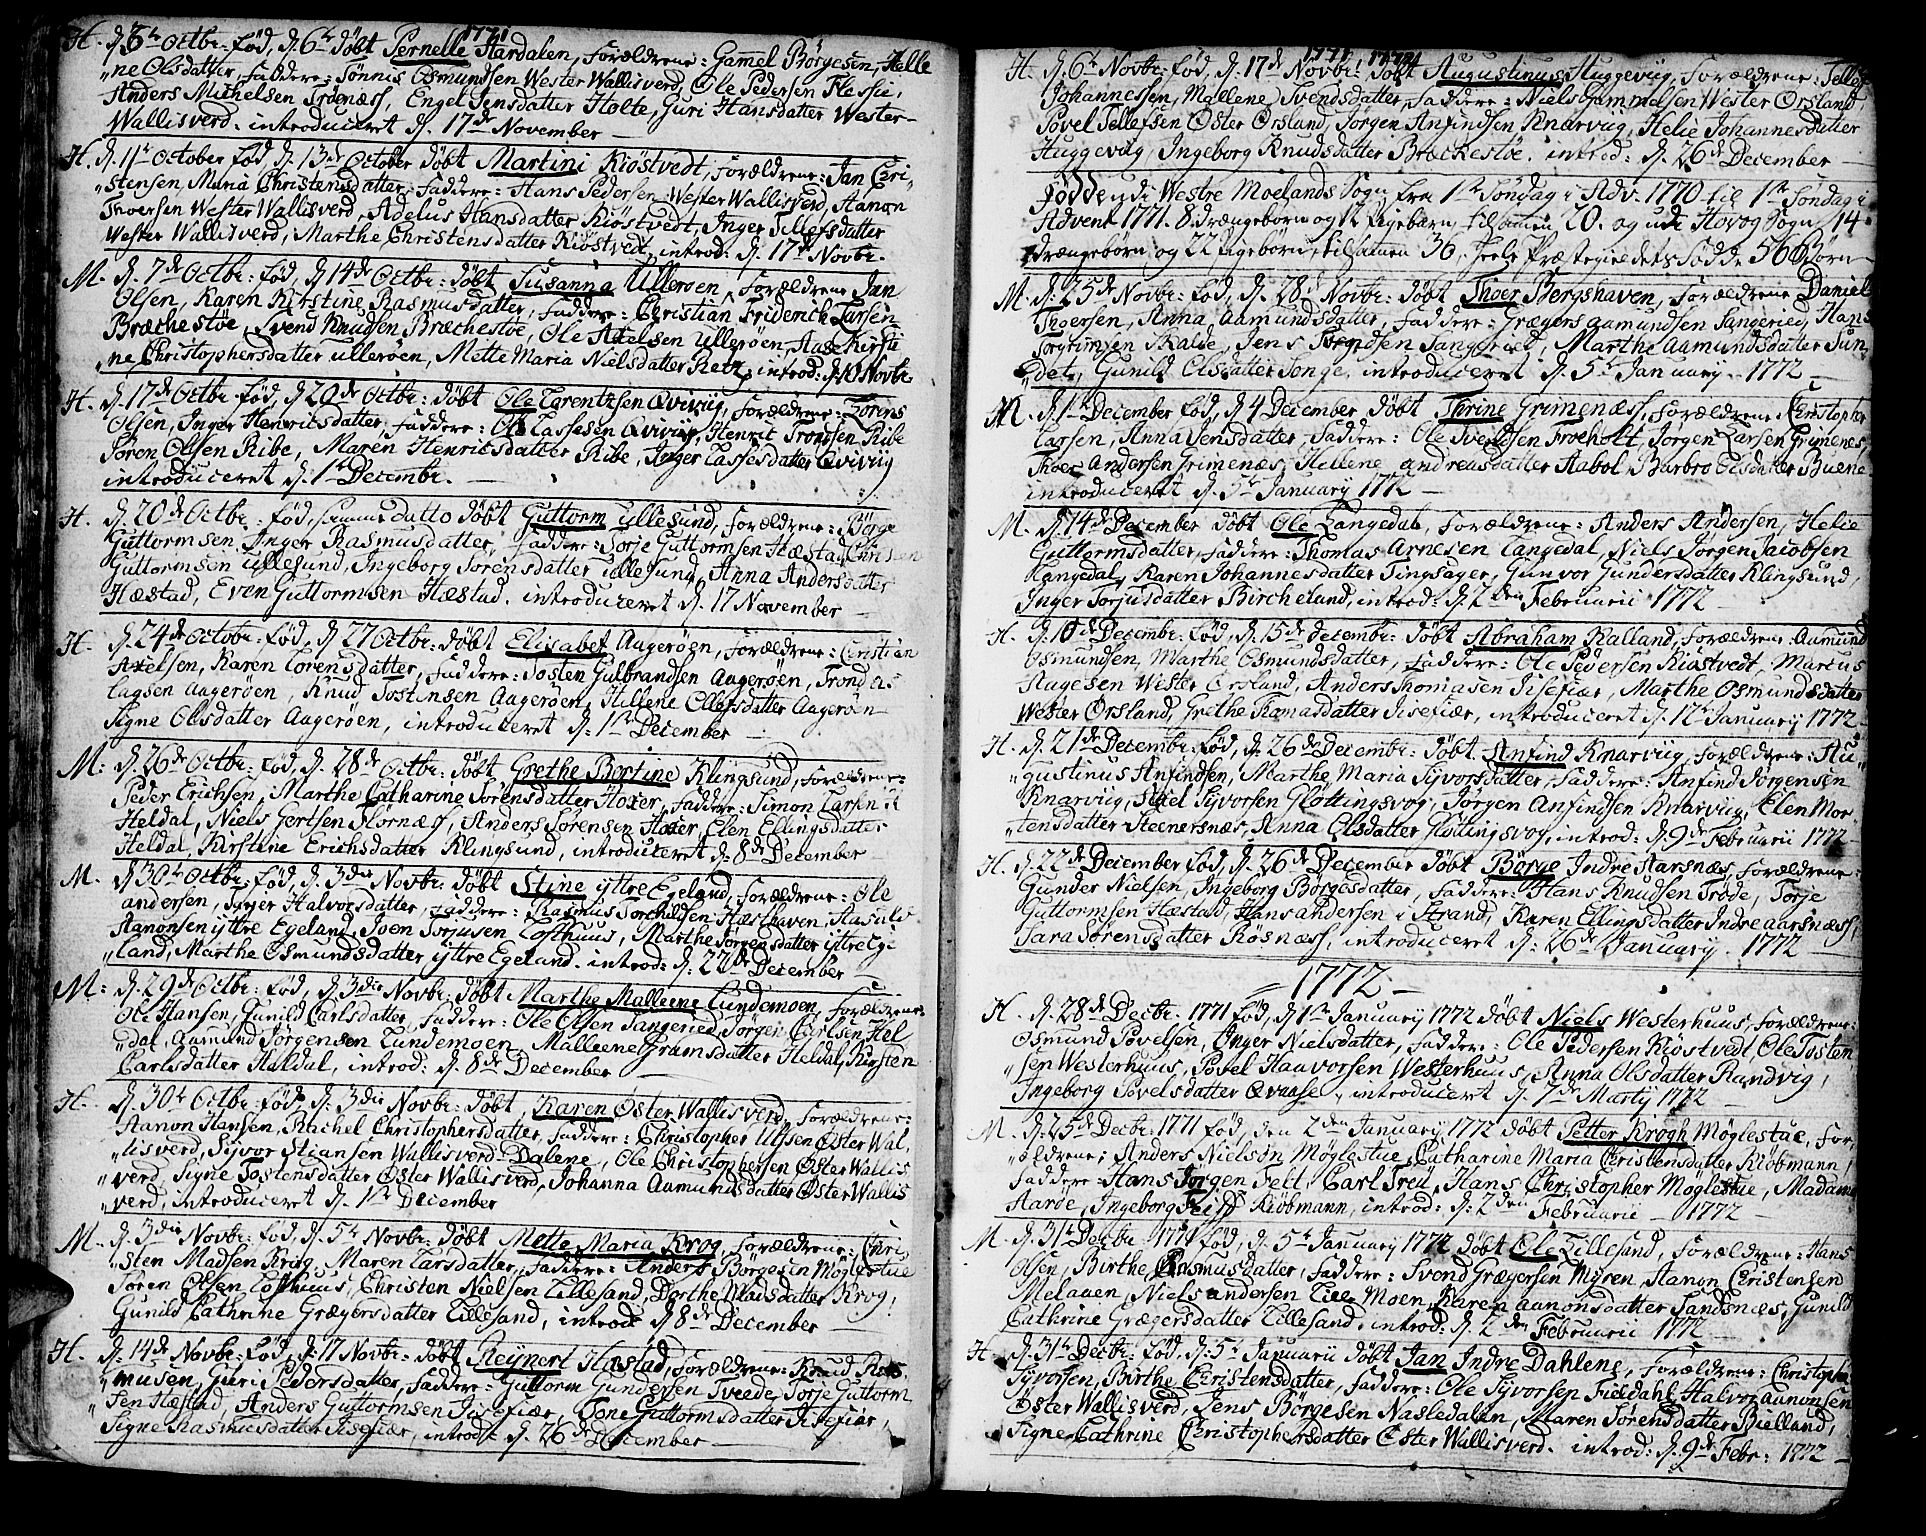 1771
H. d. 3de Octbr. fød, d. 6te døbt Pernelle Hardalen, Forældrene: Gamel Børgesen, Helle
"ne Olsdatter, Faddere: Tønnis Osmundsen Wester Wallisverd, Ole Pedersen
Anders Michelsen Trøenæss, Engel Jensdatter Holte, Guri Hansdatter Wester-
Wallisverd. introduceret d. 17de November
H. d. 11te October fød, d. 13de October døbt Martini Kiöstvedt, Forældrene: Jan Chri-
"stensen, Maria Christensdatter, Faddere: Hans Pedersen Wester Wallisverd, Aanon
Thoersen Wester Wallisverd, Adelus Hansdatter Kiöstvedt, Inger Tellefsdatter
Wester Wallisverd, Marthe Christensdatter Kiöstvedt, introd: d. 17de Novbr.
M. d. 7de Octbr. fød, d. 14de Octbr. døbt Susanna Ulleröen, Forældrene Jan
Olsen, Karen Kirstine Rasmusdatter, Faddere: Christian Friderich Larsen
Bræchestöe, Svend Knudsen Bræchestöe, Ole Axelsen Ulleröen, Aase Kirsti
"ne Christophersdatter ulleröen, Mette Maria Nielsdatter, introd: d. 10 Novbr.
H. d. 17de Octbr. fød, d. 20de Octbr: døbt Ole Lorentzsen Qviviig, Forældrene: Lorens
Olsen, Inger Henricsdatter, Faddere: Ole Lassesen Qviviig, Henric Trondsen Ribe
Søren Olsen Ribe, Maren Henricsdatter Ribe, Inger Lassesdatter Qviviig
introduceret d. 1ste Decembr.
H. d. 20de Octbr: fød, samme datto døbt Guttorm Lillesund, Forældrene: Börge
Guttormsen, Inger Rasmusdatter, Faddere: Torje Guttormsen Hæstad, Christen
Guttormsen Lillesund, Ingeborg Sörensdatter Lillesund, Anna Andersdatter
Hæstad, Even Guttormsen Hæstad. introduceret d. 17 November
H. d. 24de Octobr: fød, d. 27 Octbr: døbt Elisabet Aagerøen, Forældrene: Christian
Axelsen, Karen Lorensdatter, Faddere: Tosten Gulbrandsen Aagerøen, Trond As-
lagsen Aagerøen, Knud Tostensen Aagerøen, Hellene Ellefsdatter Aagerøen
Signe Olsdatter Aagerøen, introduceret d. 1ste December
M: d. 26de Octbr. fød, d. 28de Octbr: døbt Grethe Bertine Klingsund, Forældrene:
Peder Erichsen, Marthe Catharine Sørensdatter Hoxer, Faddere: Simon Larsen
Heldal, Niels Gertsen Hornæss, Anders Sørensen Hoxer, Elen Ellingsdatter
Heldal, Kirstine Erichsdatter Klingsund, introduceret d. 8de December
M. d. 30te Octbr: fød, d. 3die Novbr: døbt Stine yttre Egeland, Forældrene: Ole
andersen, Inger Halvorsdatter, Faddere: Rasmus Torchildsen Hæsthaven, Aasuld
Aanonsen yttre Egeland, Joen Torjusen Tofthuus, Marthe Jørgensdatter yttre Ege
land, Marthe Osmundsdatter yttre Egeland. introd: d. 22de December
M: d. 29de Octbr: fød, d. 3die Novbr: døbt Marthe Malleene Lundemoen, Forældrene:
Ole Hansen, Gunild Carlsdatter, Faddere: Ole Olsen Sangeried, Jørgen Carlsen Hel
"dal, Aamund Jørgensen Lundemoen, Malleene Gramsdatter Heldal, Kirsten
Carlsdatter Heldal, introd: d. 8de December
H. d. 30te Octbr: fød, d. 3die Novbr: døbt, Karen Øster Wallisverd, Forældrene:
Aanon Hansen, Rachel Christophersdatter, Faddere: Christopher Ulfsen Øster Wal,
"lisverd, Syvor Stiansen Wallisverd-Dalene, Ole Christophersen Øster Wallis
"verd, Signe Tostensdatter Øster Wallisverd, Johanna Aamundsdatter Øster Wallis
"verd, introduceret d. 1ste December
M. d. 3die Novbr: fød, d. 5te Novbr: døbt Mette Maria Krog, Forældrene: Chri
"sten Madsen Krog, Maren Larsdatter, Faddere: Anders Børgesen Møglestue
Søren Olsen Tofthuus, Christen Nielsen Lillesand, Dorthe Madsdatter Krog,
Gunild Cathrine Grægersdatter Lillesand, introd: d. 8de December
H. d. 14de Novbr: fød, d. 17 Novbr: døbt Reynert Hæstad, Forældrene: Knud Ras
"musen, Guri Pedersdatter, Faddere: Guttorm Gundersen Tveede, Torje Guttorm
"sen Hæstad, Anders Guttormsen Jisefiær, Tone Guttormsdatter Jisefiær,
Signe Rasmusdatter Jisefiær, introd: d. 26de December
1771 1772
H. d. 6te Novbr: fød, d. 17de Novbr: døbt Augustinus Huggeviig, Forældrene: Tellef
Johannessen, Mallene Svendsdatter, Faddere: Niels Gammelsen Wester Ørsland
Povel Tellefsen Öster Ørsland, Jørgen Anfindsen Knarviig, Helie Johannesdatter
Huggeviig, Ingeborg Knudsdatter Bræchestøe. introd: d. 26de December
Fødde udi Westre Moelands Sogn fra 1ste Søndag i Adv. 1770 til 1ste Søndag i
Advent 1771. 8 drængebørn og 12 Pigebørn, tilsamen 20. og udi Høvog Sogn 14
drængebørn og 22 Pigebørn, tilsamen 36, heele Præstegieldets Fødde 56 Børn
M. d. 25de Novbr: fød, d. 28de Novbr: døbt Thoer Bergshaven, Forældrene Daniel
Thoersen, Anna Aamundsdatter, Faddere: Grægers aamundsen Sangeried, Hans
Torgrimsen Skalde, Jens Trondsen Sangeried, Marthe Aamundsdatter Sun,
"det, Gunild Olsdatter Songe, introduceret d. 5te January 1772
M. d. 1ste December fød, d. 4 December døbt Thrine Grimenæss, Forældrene: Christopher
Larsen, Anna Jensdatter, Faddere: Ole Svendsen Froeholt, Jørgen Larsen Grimenes,
Thoer Andersen Grimenæs, Hellene andreasdatter Aabol, Barbro Olsdatter Buene
introduceret d. 5te January 1772
M. d. 14de December døbt Ole Langedal, Forældrene: Anders Andersen, Helie
Guttormsdatter, Faddere: Thomas Arnesen Langedal, Niels Jørgen Jacobsen
Langedal, Karen Johannesdatter Tingsager, Gunvor Gundersdatter Klingsund,
Inger Torjusdatter Bircheland, introd: d. 2den Februarii 1772
H. d. 10de Decembr: fød, d. 15de decembr: døbt Abraham Kalland, Forældrene Aamund
Osmundsen, Marthe Osmundsdatter, Faddere: Ole Pedersen Kiöstvedt, Marcus
Aagesen Wester Ørsland, Anders Thomasen Jisefiær, Marthe Osmundsdatter
Wester Ørsland, Grethe Thomasdatter Jisefiær, introduceret d. 12te January 1772
H. d. 21de Decembr: fød, d. 26de Decembr: døbt Anfind Knarviig, Forældrene: Au
"gustinus Anfindsen, Marthe Maria Syvorsdatter, Faddere: Anfind Jørgensen
Knarviig, Axel Syvorsen Glöttingsvog, Jørgen Anfindsen Knarviig, Elen Mor
"tensdatter Steenersnæs, Anna Olsdatter Glöttingsvog, introd: d. 9de Februarii 1772
H. d. 22de December fød, d. 26de December døbt Börge Indre Aarsnæs, Forældrene:
Gunder Nielsen, Ingeborg Börgesdatter, Faddere: Hans Knudsen Trøde, Torje
Guttormsen Hæstad, Hans andersen i Strand, Karen Ellingsdatter Indre aarsnæss,
Sara Sørensdatter Røsnæss, introduceret d. 26de January. 1772
1772
H. d. 28de Decbr. 1771 fød, d. 1ste January 1772 døbt Niels Westerhuus, Forældrene:
Osmund Povelsen, Inger Nielsdatter, Faddere: Ole Pedersen Kiöstvedt, Ole Tosten
"sen Westerhuus, Povel Haavorsen Westerhuus, Anna Olsdatter Randvig,
Ingeborg Povelsdatter Qvaase, introduceret d. 7de Marty 1772
M. d. 25de Decbr: 1771 fød, den 2den January 1772 døbt Petter Krogh Møglestue, For,
"ældrene: Anders Nielsøn Møglestue, Catharine Maria Christensdatter Kiøbmann,
Faddere: Hans Jørgen Fett, Carl Treu, Hans Christopher Møglestue, Madame
Aarde, Ingeborg Kiøbmann, introd: d: 2den Februarii 1772
M. d. 31te Decbr 1771 fød, d. 5te January 1772 døbt Ole Lillesand, Forældrene: Hans
Olsen, Birthe Rasmusdatter, Faddere: Svend Grægersen Myren, Aanon Christensen
Melaaen, Niels andersen Lille Moen, Karen aanonsdatter Sandsnæs, Gunild
Cathrine Grægersdatter Lillesand. introd: d. 2den Februarii 1772
H. d. 31te Decbr: fød, d. 5te Januarii døbt Jan Indre Dahlene, Forældrene: Christopher
Syvorsen, Birthe Christensdatter, Faddere: Ole Syvorsen Fieldahl, Halvor aanonsen
Øster Wallisverd, Jens Børgesen Nasledalen, Maren Sørensdatter Bielland,
Signe Cathrine Christophersdatter Øster Wallisverd. introd: d. 9de Febr: 1772